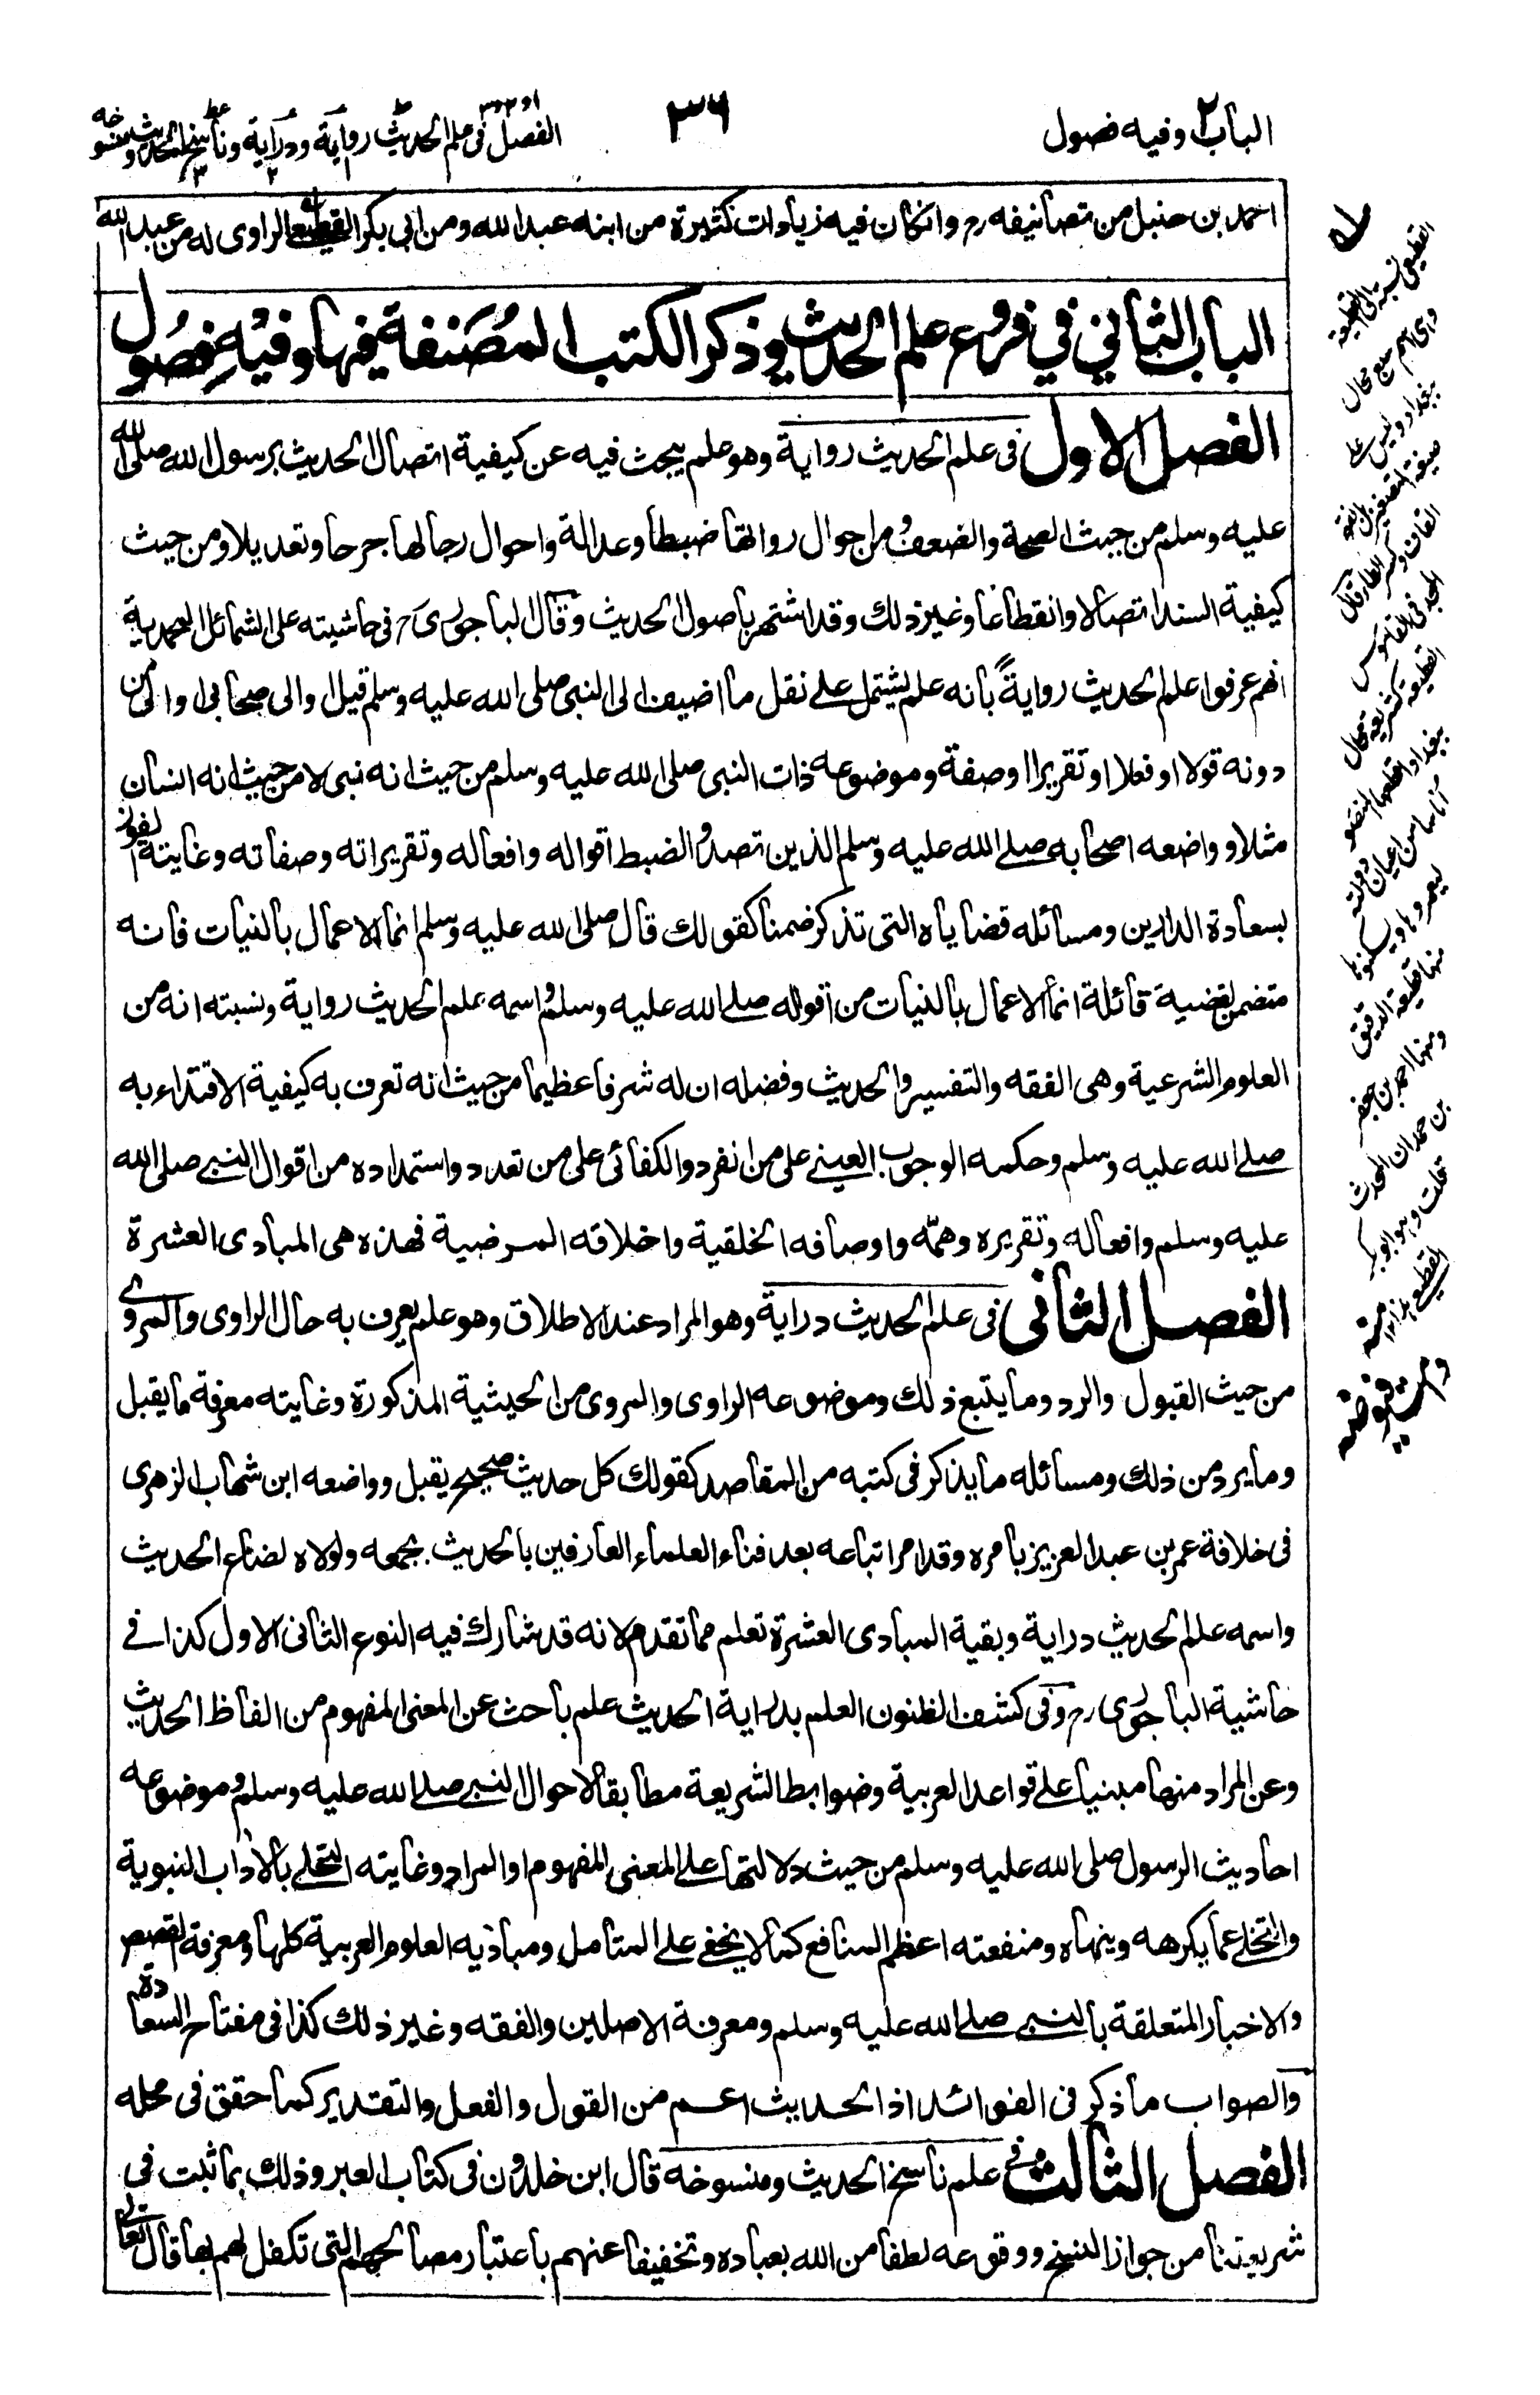 الباب٢ وفيه فصول
٣٦
الفصل ١و٢و٣ فى علم الحديث رواية ودراية وناسخ الحديث ومنسوخه
احمد بن حنبل من تصانيفه رح وانكان فيه زيادات كثيرة من ابنه عبد الله ومن ابى بكر القطيعى الراوى له من عبد الله
الباب الثاني في فروع علم الحديث وذكر الكتب المصنفة فيها وفيه فصول
الفصل الاول فى علم الحديث رواية وهو علم يبحث فيه عن كيفية اتصال الحديث برسول الله صلى الله
عليه وسلم من حيث الصحة والضعف ومن احوال رواتها ضبطا وعدالة واحوال رجالها جرحا وتعديلا ومن حيث
كيفية السند اتصالا وانقطاعا وغير ذلك وقد اشتهر باصول الحديث وقال الباجورى رح فى حاشيته على الشمائل المحمدية
انهم عرفوا علم الحديث رواية بانه علم يشتمل على نقل ما اضيف الى النبى صلى الله عليه وسلم قيل او الى صحابى او الى من
دونه قولا او فعلا او تقريرا او صفة وموضوعه ذات النبى صلى الله عليه وسلم من حيث انه نبى لا من حيث انه انسان
مثلا وواضعه اصحابه صلى الله عليه وسلم الذين تصدوا لضبط اقواله وافعاله وتقريراته وصفاته وغايته الفوز
بسعادة الدارين ومسائله قضاياه التى تذكر ضمنا كقولك قال صلى الله عليه وسلم انما الاعمال بالنيات فانه
متضمن لقضية قائلة انما الاعمال بالنيات من اقواله صلى الله عليه وسلم واسمه علم الحديث رواية ونسبته انه من
العلوم الشرعية وهى الفقه والتفسير والحديث وفضله ان له شرفا عظيما من حيث انه تعرف به كيفية الاقتداء به
صلى الله عليه وسلم وحكمه الوجوب العينى على من انفرد والكفائى على من تعدد واستمداده من اقوال النبى صلى الله
عليه وسلم وافعاله وتقريره وهمّه واوصافه الخلقية واخلاقه المرضية فهذه هى المبادى العشرة
الفصل الثانى فى علم الحديث دراية وهو المراد عند الاطلاق وهو علم يعرف به حال الراوى والمروى
من حيث القبول والرد وما يتبع ذلك وموضوعه الراوى والمروى من الحيثية المذكورة وغايته معرفة ما يقبل
وما يرد من ذلك ومسائله ما يذكر فى كتبه من المقاصد كقولك كل حديث صحيح يقبل وواضعه ابن شهاب الزهرى
فى خلافة عمر بن عبد العزيز بامره وقد امر اتباعه بعد فناء العلماء العارفين بالحديث بجمعه ولولاه لضاع الحديث
واسمه علم الحديث دراية وبقية المبادى العشرة تعلم مما تقدم لانه قد شارك فيه النوع الثانى الاول كذا فى
حاشية الباجورى رح وفى كشف الظنون العلم بدراية الحديث علم باحث عن المعنى المفهوم من الفاظ الحديث
وعن المراد منها مبنيا على قواعد العربية وضوابط الشريعة مطابقا لاحوال النبى صلى الله عليه وسلم وموضوعه
احاديث الرسول صلى الله عليه وسلم من حيث دلالتها على المعنى المفهوم او المراد وغايته التحلى بالآداب النبوية
والتخلى عما يكرهه وينهاه ومنفعته اعظم المنافع كما لا يخفى على المتامل ومباديه العلوم العربية كلها ومعرفة القصص
والاخبار المتعلقة بالنبى صلى الله عليه وسلم ومعرفة الاصلين والفقه وغير ذلك كذا فى مفتاح السعادة
والصواب ما ذكر فى الفوائد اذ الحديث اعم من القول والفعل والتقدير كما حقق فى محله
الفصل الثالث فى علم ناسخ الحديث ومنسوخه قال ابن خلدون فى كتاب العبر وذلك بما ثبت فى
شريعتنا من جواز النسخ ووقوعه لطفا من الله بعباده وتخفيفا عنهم باعتبار مصالحهم التى تكفل لهم بها قال تعالى
القطيعى نسبة الى القطيعة
وهى اسم سبع محال
ببغداد وليس على
صيغة التصغير بل بفتح
القاف وكسر الطاء قال
المجد فى القاموس
القطيعة كشريعة محال
ببغداد اقطعها المنصور
اناسا من اعيان دولته
ليعمروها ويسكنوها
منها قطيعة الدقيق
ومنها احمد بن جعفر
بن حمدان المحدث
قلت وهو ابو بكر
القطيعى هذا ١٢ منه